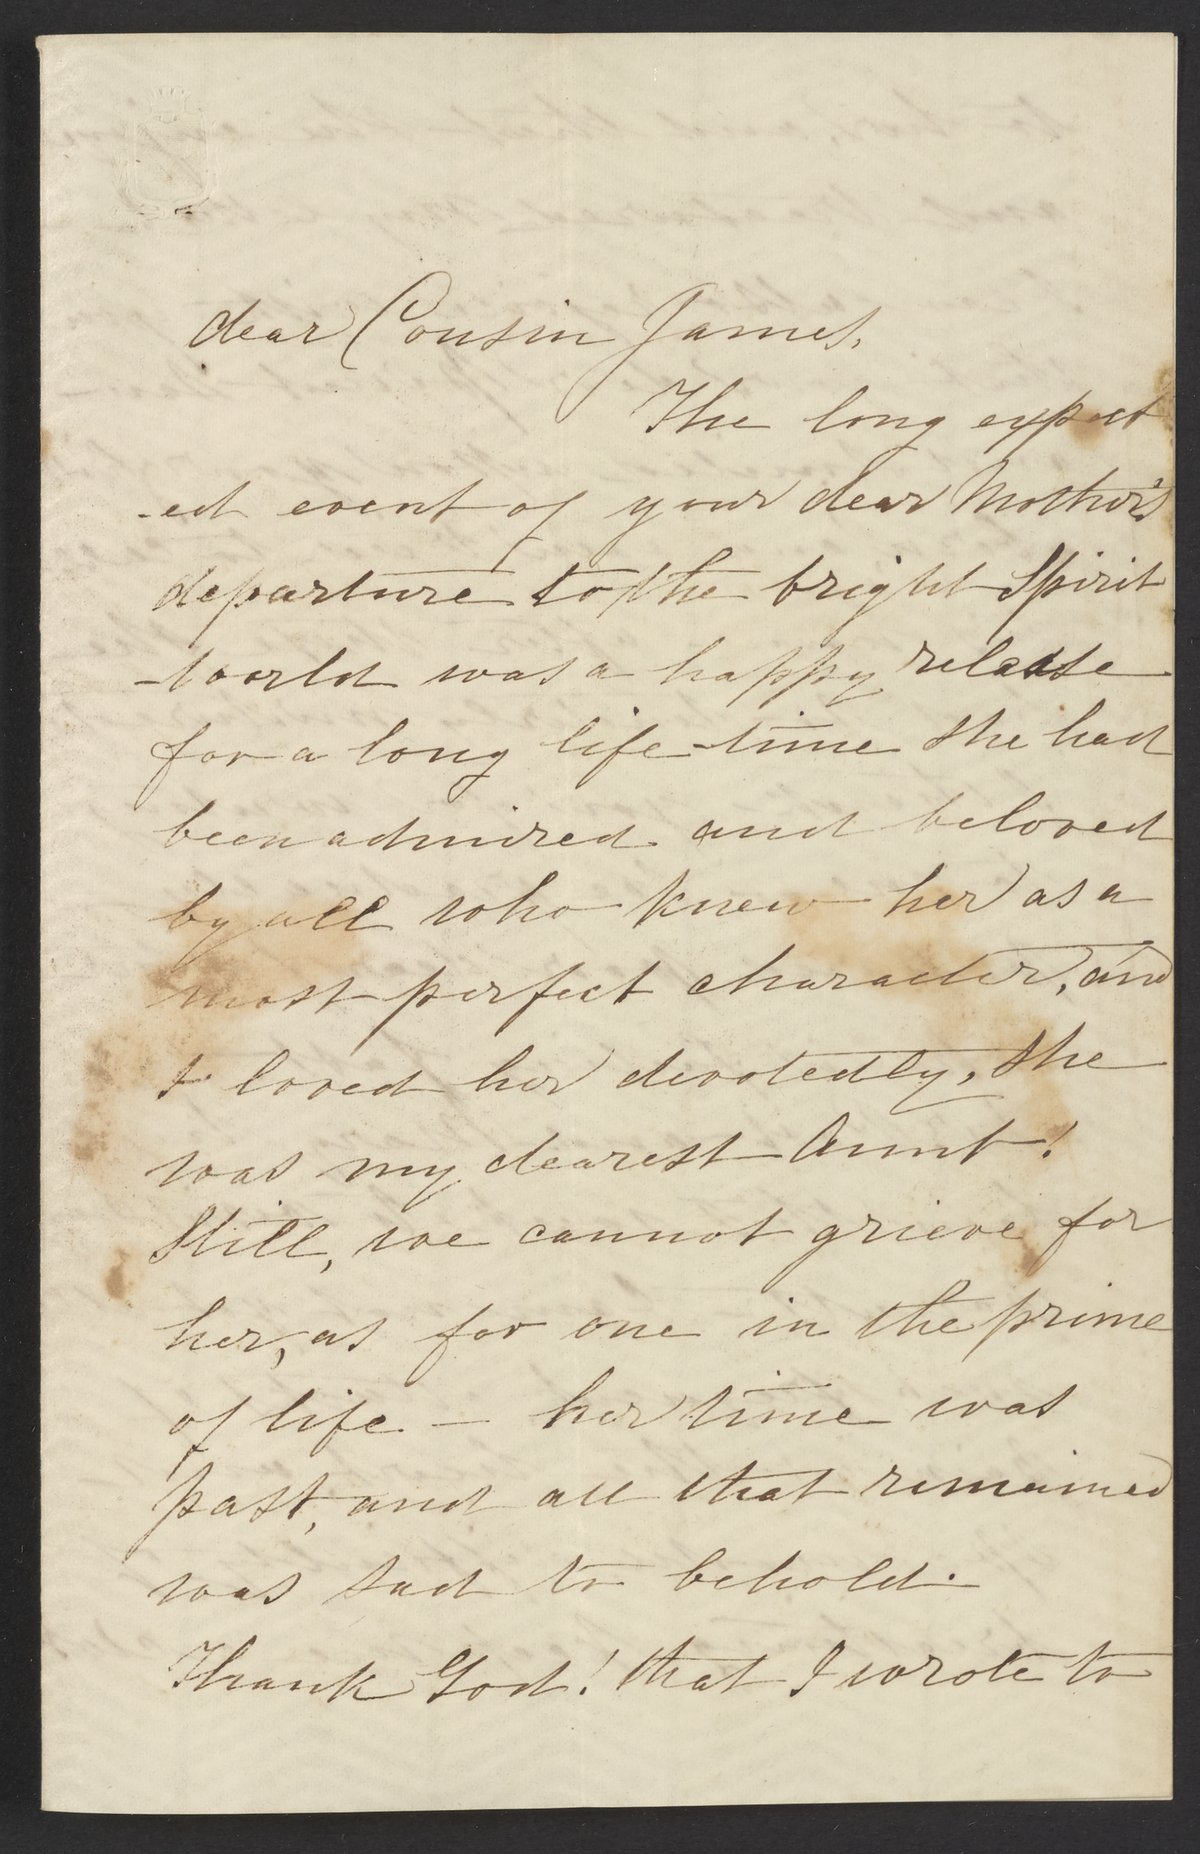 dear Cousin James,
The long expect
-ed event of your dear Mother's
departure to the bright Spirit
-world was a happy release
for a long life-time she had
been admired and beloved
by all who knew her as a
most perfect character, and
I loved her devotedly, she
was my dearest Aunt!
Still, we cannot grieve for
her, as for one in the prime
of life — her time was
past, and all that remained
was sad to behold.
Thank God! that I wrote to